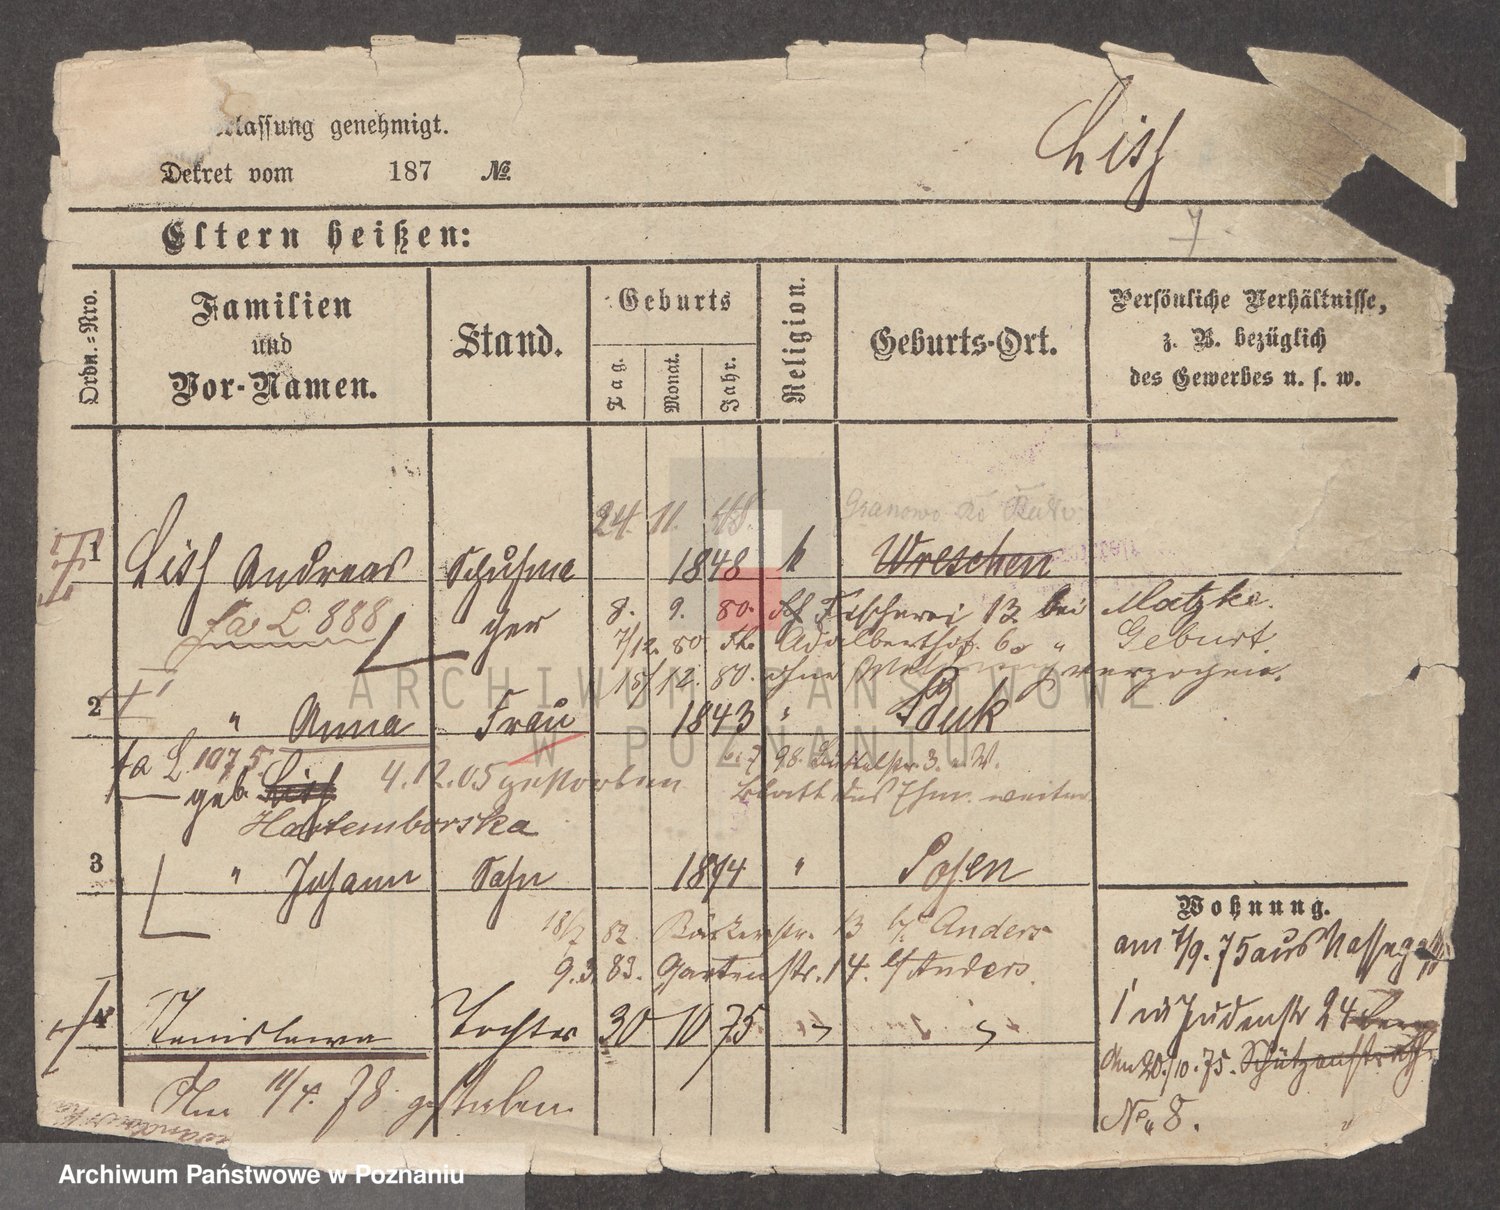 lassung genehmigt.
Dekret vom 187 №.
Lisz
7
Eltern heißen:
Ordn.=Nro.
Familien
und
Vor-Namen.
Stand.
Geburts
Tag.
Monat.
Jahr.
Religion.
Geburts-Ort.
Persönliche Verhältnisse,
z. B. bezüglich
des Gewerbes u. s. w.
24. 11. 48. Granowo
1 Lisz Andreas Schuhma 1848 k Wreschen
cher
fa L 888
8. 9. 80. Fischerei 13 bei Matzke.
7/12. 80 Adalbertstr. 6 " Geburt.
15/12. 80. ohne verzogen.
2 " Anna Frau 1843 " Buk
fa L. 1075.
geb. Lisz 4.12.05 gestorben
98. 3.
Blatt des Ehm. weiter
Hartemborska
3 " Johann Sohn 1874 " Posen
18/7 82 Bäckerstr. 13 b/ Anders
9.3. 83. Gartenstr. 14. b/ Anders.
4 Stanislawa Tochter 30 10 75 " "
Am 11/4. 78 gestorben
Wohnung.
am 7/9. 75 aus Nasseg
1 in Judenstr 24
Am 20./10. 75. Schützenstraße
No. 8.
ARCHIWUM PAŃSTWOWE
W POZNANIU
Archiwum Państwowe w Poznaniu